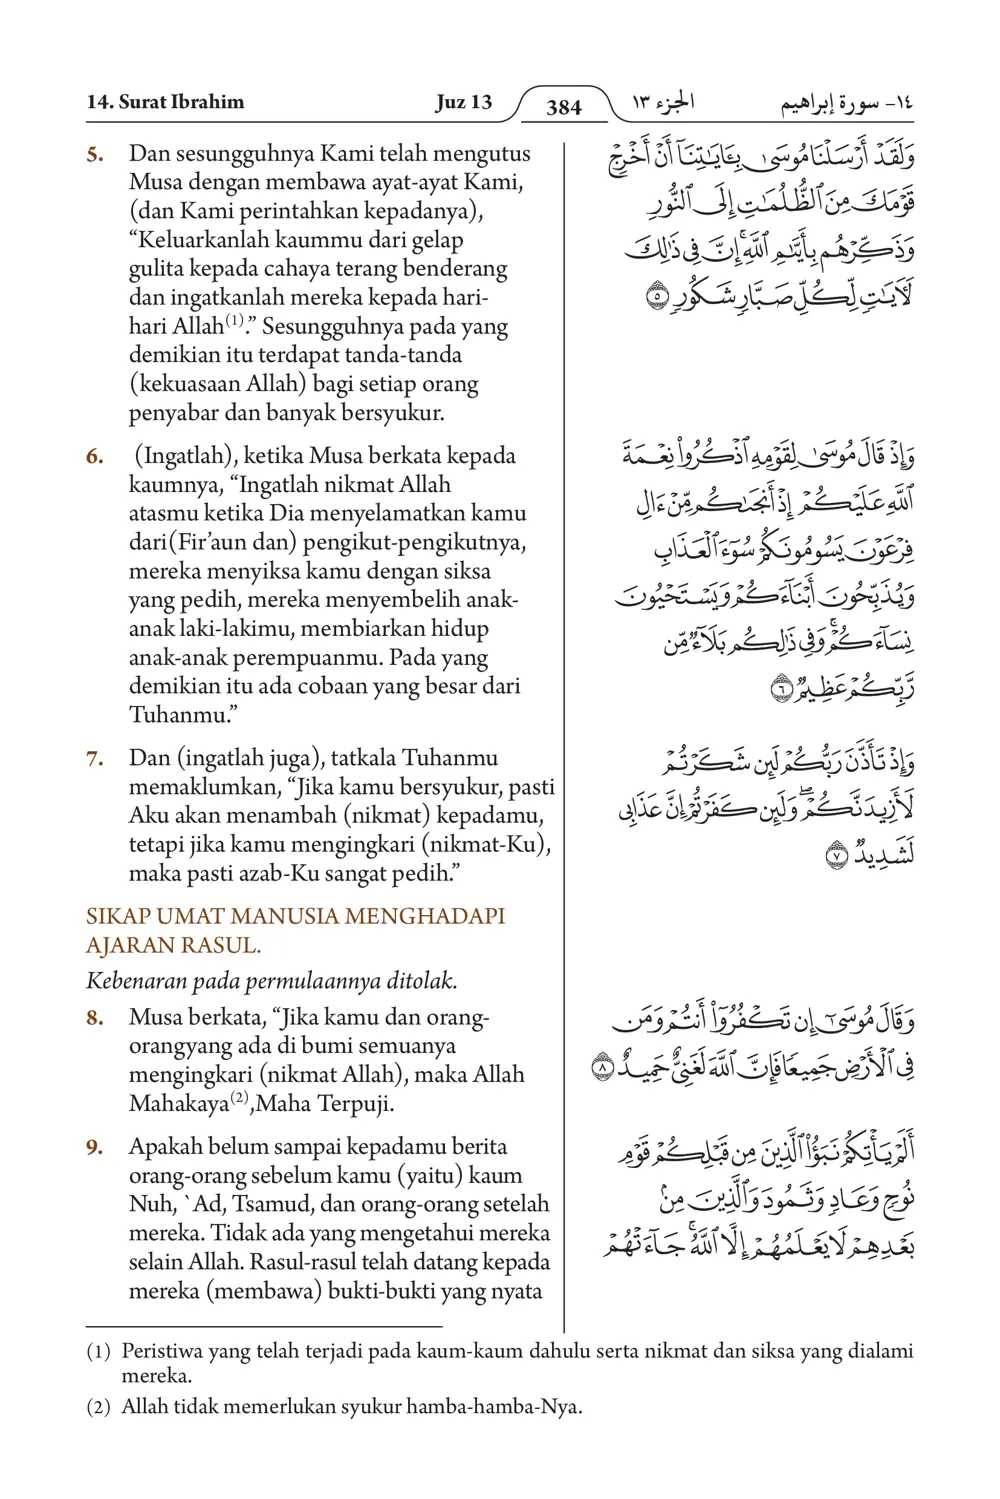 14. Surat Ibrahim Juz 13 384 الجزء ١٣ ١٤- سورة إبراهيم
5. Dan sesungguhnya Kami telah mengutus
Musa dengan membawa ayat-ayat Kami,
(dan Kami perintahkan kepadanya),
“Keluarkanlah kaummu dari gelap
gulita kepada cahaya terang benderang
dan ingatkanlah mereka kepada hari-
hari Allah(1).” Sesungguhnya pada yang
demikian itu terdapat tanda-tanda
(kekuasaan Allah) bagi setiap orang
penyabar dan banyak bersyukur.
وَلَقَدْ أَرْسَلْنَا مُوسَىٰ بِـَٔايَـٰتِنَآ أَنْ أَخْرِجْ
قَوْمَكَ مِنَ ٱلظُّلُمَـٰتِ إِلَى ٱلنُّورِ
وَذَكِّرْهُم بِأَيَّىٰمِ ٱللَّهِ ۚ إِنَّ فِى ذَٰلِكَ
لَـَٔايَـٰتٍ لِّكُلِّ صَبَّارٍ شَكُورٍ ٥
6. (Ingatlah), ketika Musa berkata kepada
kaumnya, “Ingatlah nikmat Allah
atasmu ketika Dia menyelamatkan kamu
dari(Fir’aun dan) pengikut-pengikutnya,
mereka menyiksa kamu dengan siksa
yang pedih, mereka menyembelih anak-
anak laki-lakimu, membiarkan hidup
anak-anak perempuanmu. Pada yang
demikian itu ada cobaan yang besar dari
Tuhanmu.”
وَإِذْ قَالَ مُوسَىٰ لِقَوْمِهِ ٱذْكُرُوا۟ نِعْمَةَ
ٱللَّهِ عَلَيْكُمْ إِذْ أَنجَىٰكُم مِّنْ ءَالِ
فِرْعَوْنَ يَسُومُونَكُمْ سُوٓءَ ٱلْعَذَابِ
وَيُذَبِّحُونَ أَبْنَآءَكُمْ وَيَسْتَحْيُونَ
نِسَآءَكُمْ ۚ وَفِى ذَٰلِكُم بَلَآءٌ مِّن
رَّبِّكُمْ عَظِيمٌ ٦
7. Dan (ingatlah juga), tatkala Tuhanmu
memaklumkan, “Jika kamu bersyukur, pasti
Aku akan menambah (nikmat) kepadamu,
tetapi jika kamu mengingkari (nikmat-Ku),
maka pasti azab-Ku sangat pedih.”
وَإِذْ تَأَذَّنَ رَبُّكُمْ لَئِن شَكَرْتُمْ
لَأَزِيدَنَّكُمْ ۖ وَلَئِن كَفَرْتُمْ إِنَّ عَذَابِى
لَشَدِيدٌ ٧
SIKAP UMAT MANUSIA MENGHADAPI
AJARAN RASUL.
Kebenaran pada permulaannya ditolak.
8. Musa berkata, “Jika kamu dan orang-
orangyang ada di bumi semuanya
mengingkari (nikmat Allah), maka Allah
Mahakaya(2),Maha Terpuji.
وَقَالَ مُوسَىٰٓ إِن تَكْفُرُوٓا۟ أَنتُمْ وَمَن
فِى ٱلْأَرْضِ جَمِيعًا فَإِنَّ ٱللَّهَ لَغَنِىٌّ حَمِيدٌ ٨
9. Apakah belum sampai kepadamu berita
orang-orang sebelum kamu (yaitu) kaum
Nuh, `Ad, Tsamud, dan orang-orang setelah
mereka. Tidak ada yang mengetahui mereka
selain Allah. Rasul-rasul telah datang kepada
mereka (membawa) bukti-bukti yang nyata
أَلَمْ يَأْتِكُمْ نَبَؤُا۟ ٱلَّذِينَ مِن قَبْلِكُمْ قَوْمِ
نُوحٍ وَعَادٍ وَثَمُودَ وَٱلَّذِينَ مِنۢ
بَعْدِهِمْ لَا يَعْلَمُهُمْ إِلَّا ٱللَّهُ ۚ جَآءَتْهُمْ
(1) Peristiwa yang telah terjadi pada kaum-kaum dahulu serta nikmat dan siksa yang dialami
mereka.
(2) Allah tidak memerlukan syukur hamba-hamba-Nya.